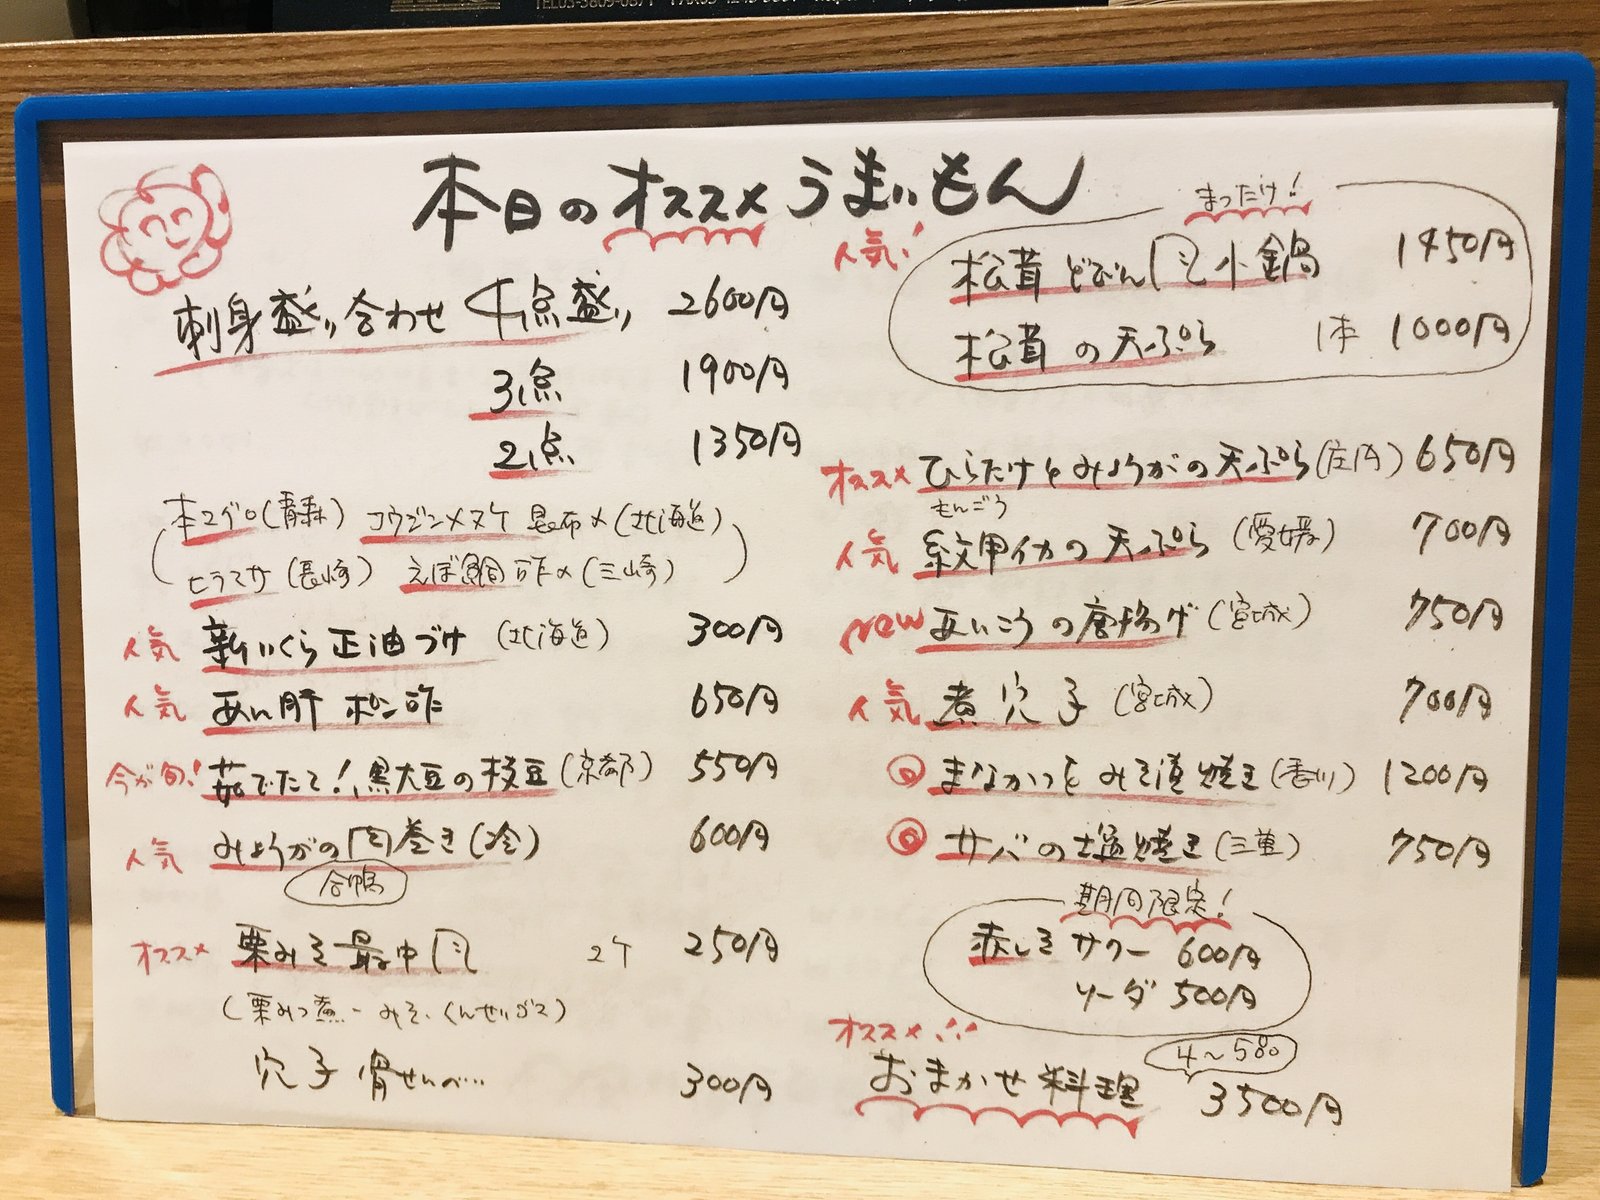 本日のオススメうまいもん
刺身盛り合わせ 4点盛り 2600円
3点 1900円
2点 1350円
本マグロ(青森) コウジンメヌケ 昆布〆(北海道)
ヒラマサ(長崎) えぼ鯛酢〆(三崎)
人気 新いくら正油づけ(北海道) 300円
人気 あん肝 ポン酢 650円
今が旬! 茹でたて!黒大豆の枝豆(京都) 550円
人気 みょうがの肉巻き(冷) 600円
合鴨
オススメ 栗みそ最中風 2ケ 250円
(栗みつ煮・みそ・くんせいチーズ)
穴子骨せんべい… 300円
まったけ!
人気! 松茸どびん風小鍋 1450円
松茸の天ぷら 1本 1000円
オススメ ひらたけとみょうがの天ぷら(庄内) 650円
もんごう
人気 紋甲イカの天ぷら(愛媛) 700円
new あいこうの唐揚げ(宮城) 750円
人気 煮穴子(宮城) 700円
まなかつおみそ漬焼き(香川) 1200円
サバの塩焼き(三重) 750円
期間限定!
赤しそサワー 600円
ソーダ 500円
オススメ
4〜5品
おまかせ料理 3500円